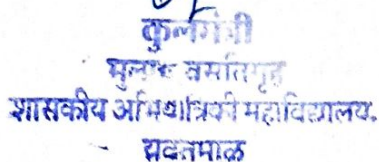 कुलमंत्री
मुलांचे वसतिगृह
शासकीय अभियांत्रिकी महाविद्यालय,
यवतमाळ